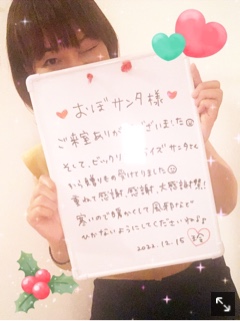 おぼサンタ様
ご来室ありがとうございました
そして、ビックリ サプライズサンタさん
から贈りもの受けてりました
重ねて感謝、感謝、大感謝祭!
寒いので暖かくして風邪など
ひかないようにしてくださいませ
2022.12.15